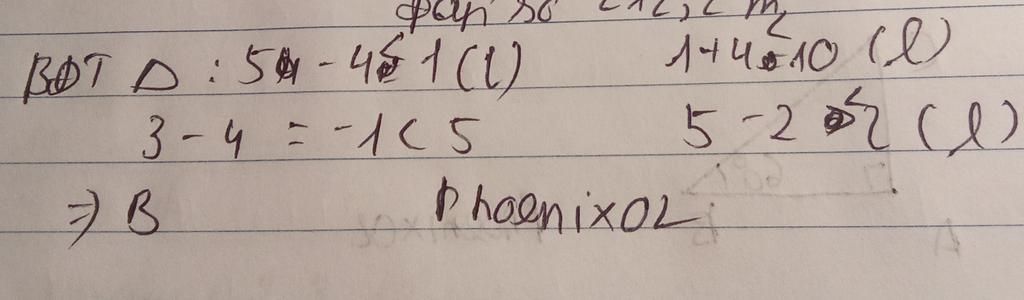 Đáp số
BĐT Δ : 5 - 4 < 1 (l) 1+4 < 10 (l)
3 - 4 = -1 < 5 5 - 2 < 2 (l)
=> B PhoenixOL